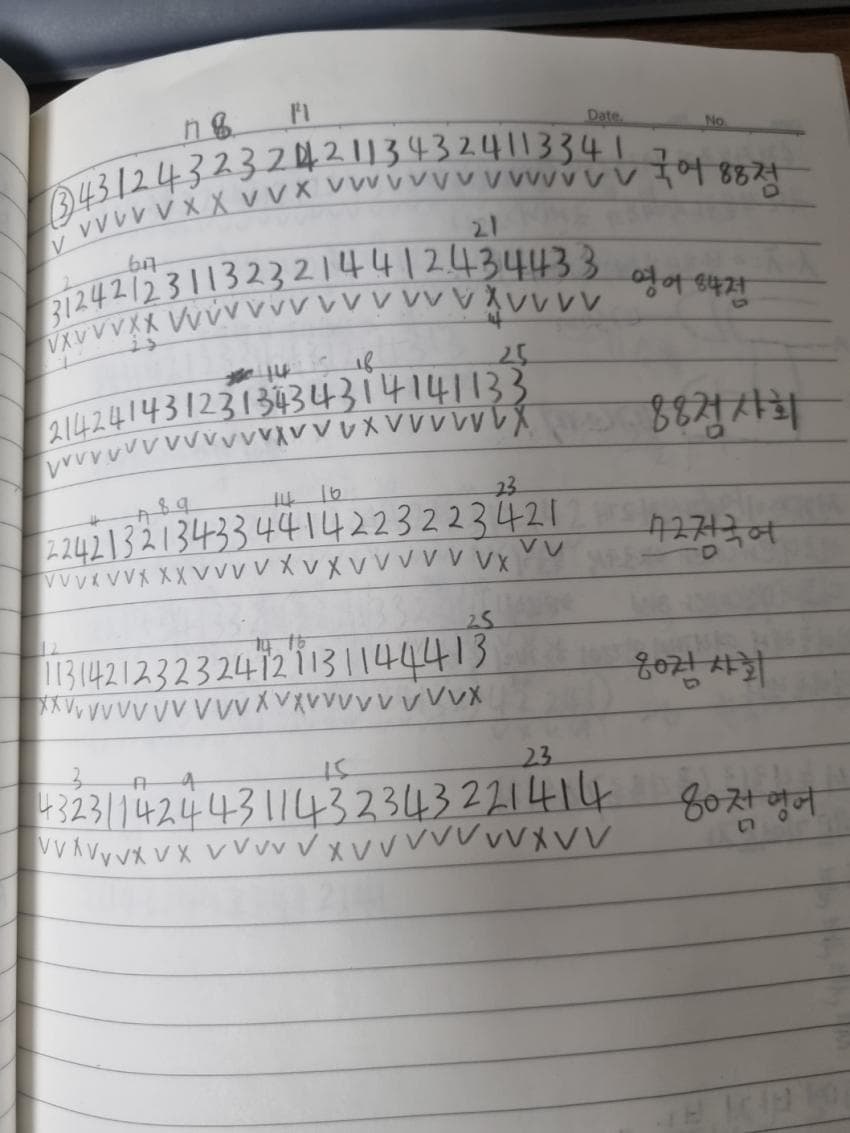 7 8 11
Date. No.
③431243232421134324113341 국어 88점
VVVVVXXVVXVVVVVVVVVVVVVVV
2 67 21
3124212311323214412434433 영어 84점
VXVVVXXVVVVVVVVVVVVVXVVVV
1 23 4
14 15 18 25
2142414312313434314141133 88점 사회
VVVVVVVVVVVVVXVVVXVVVVVVX
4 7 8 9 14 16 23
2242132134334414223223421 72점 국어
VVVXVVXXXVVVVXVXVVVVVVXVV
12 14 16 25
1131421232324121131144413 80점 사회
XXVVVVVVVVVVVXVXVVVVVVVVX
3 7 9 15 23
4323114244311432343221414 80점 영어
VVXVVVXVXVVVVVXVVVVVVVXVV